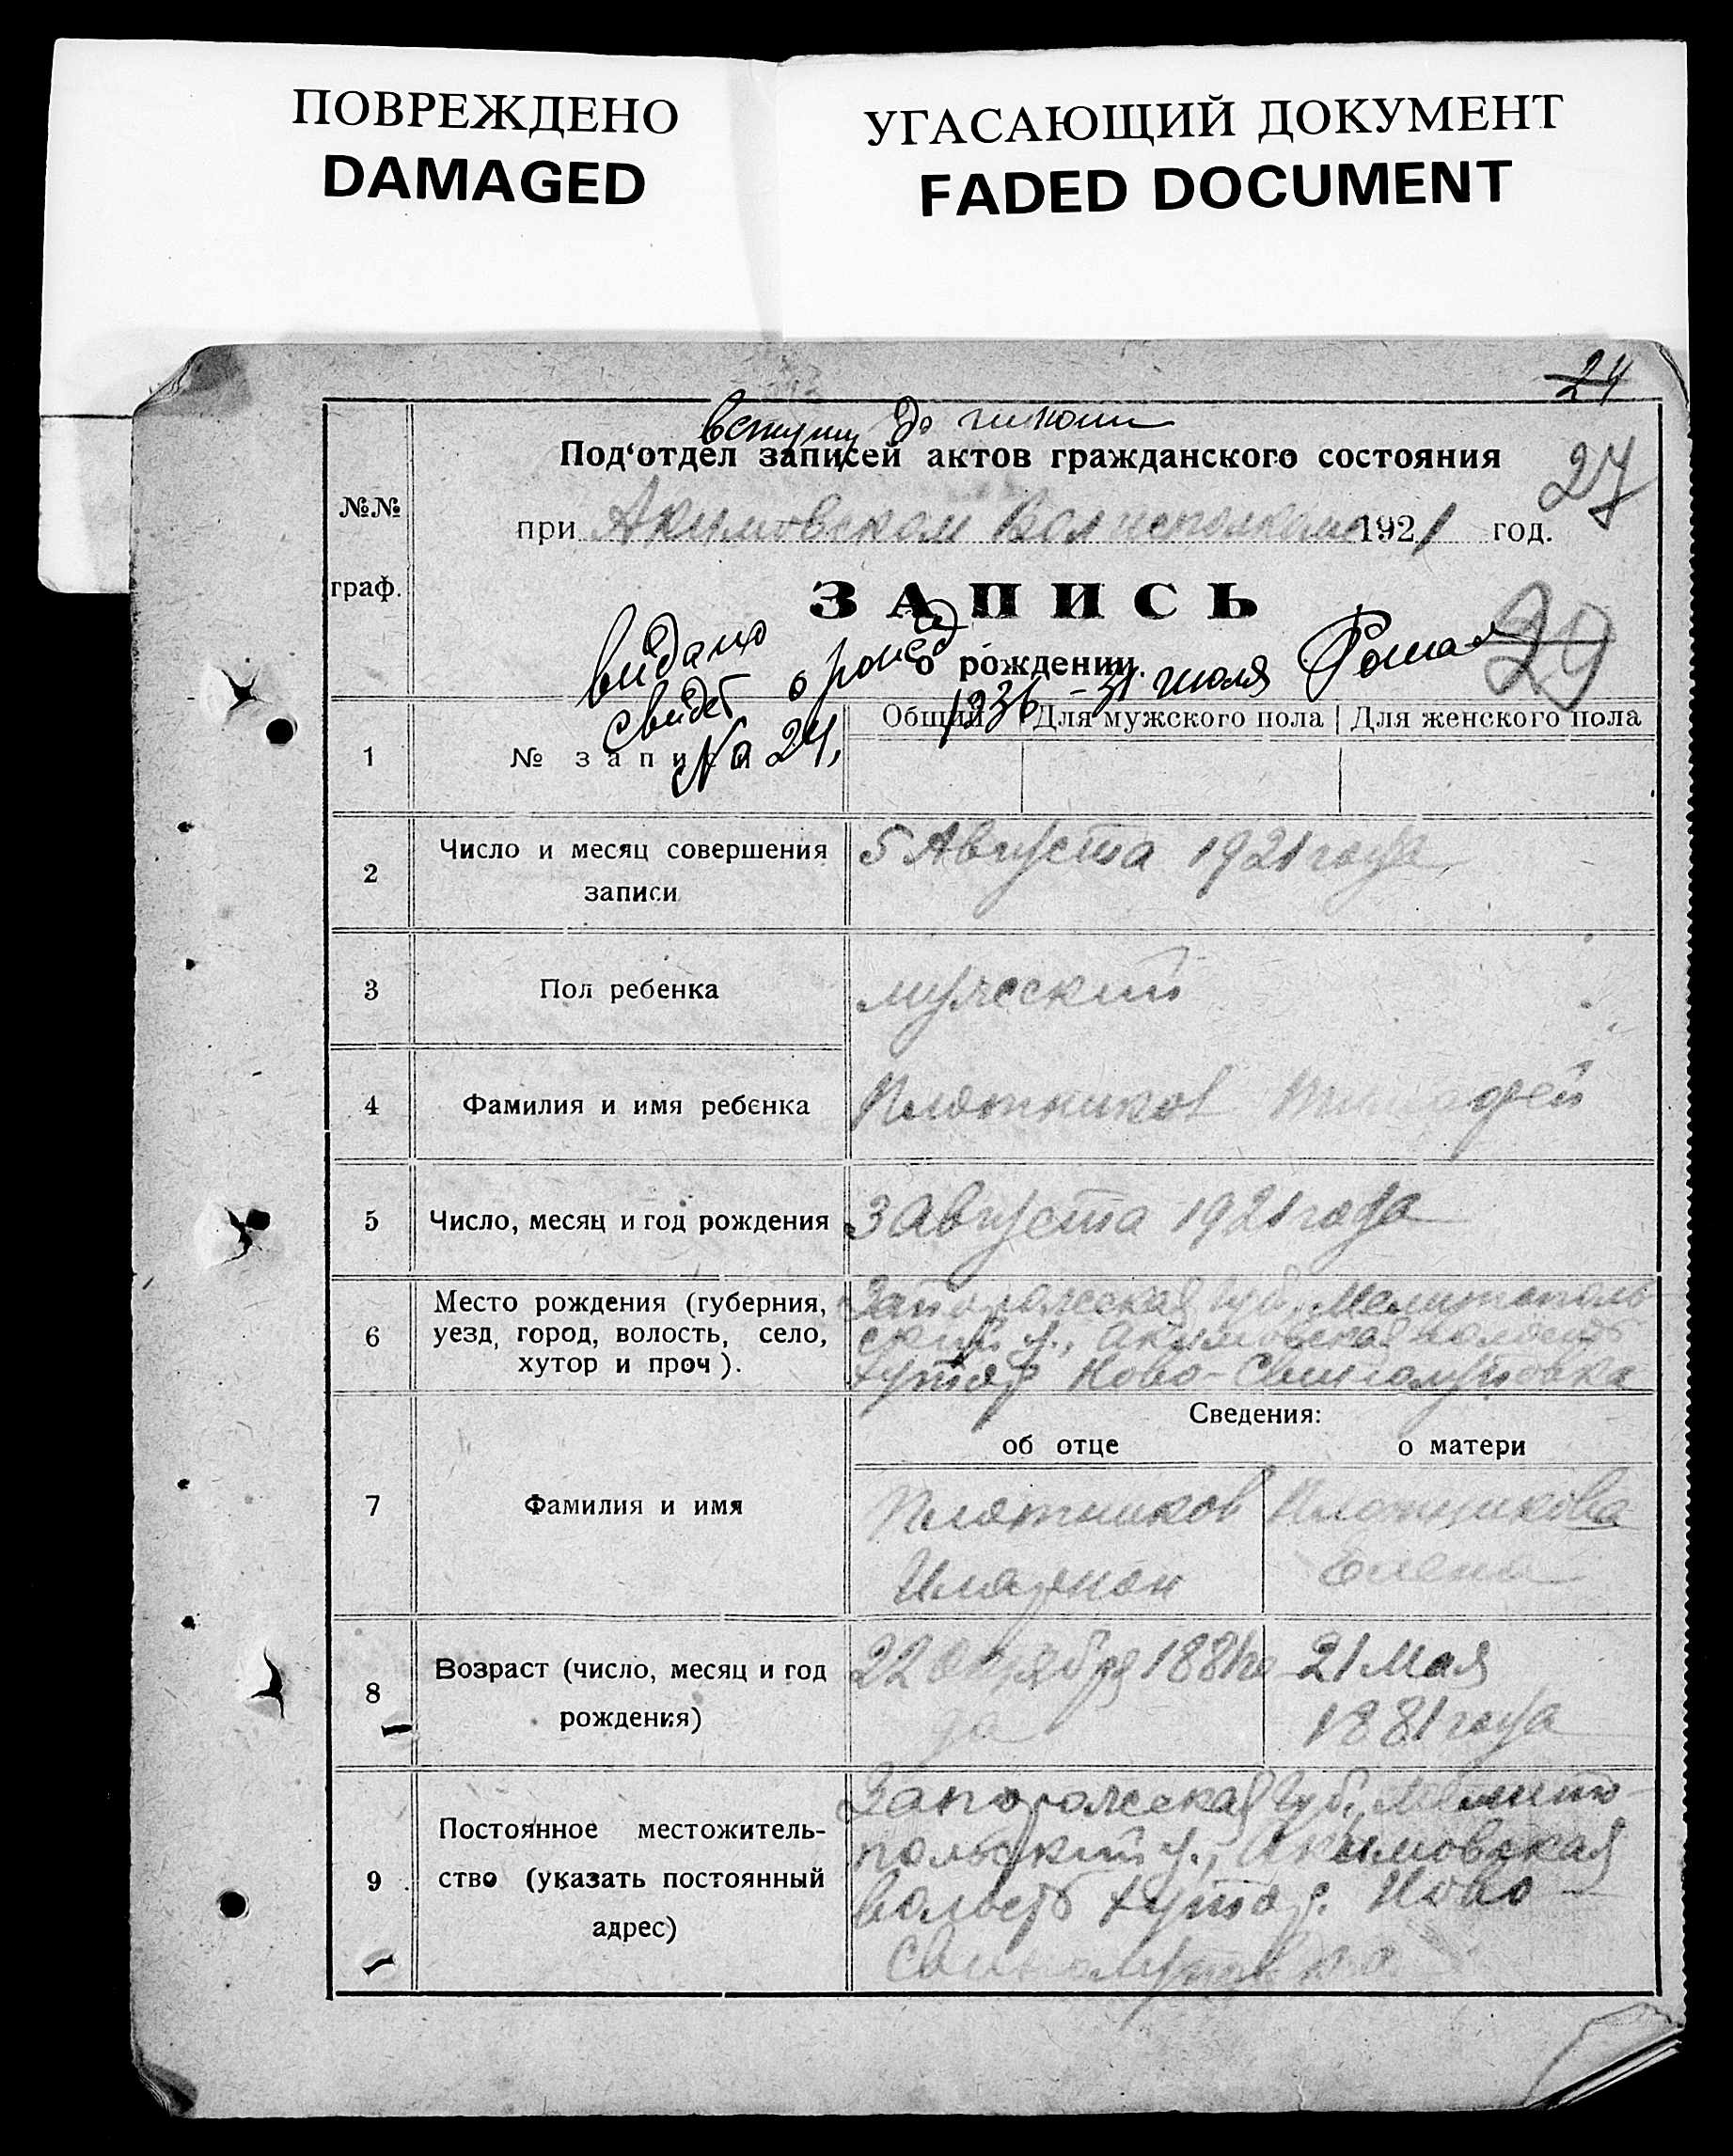 ПОВРЕЖДЕНО
DAMAGED
УГАСАЮЩИЙ ДОКУМЕНТ
FADED DOCUMENT
24
27
29
вступу до школи
Под‘отдел записей актов гражданского состояния
при Акимовском Волисполкоме 1921 год.
№№
граф.
ЗАПИСЬ
о рождении.
видано
свидет о рожд
№ 24,
1936 – 31 июля
Общий Для мужского пола Для женского пола
1 № записи
2 Число и месяц совершения
записи
5 Августа 1921 года
3 Пол ребенка мужеский
4 Фамилия и имя ребенка Плотников Тимофей
5 Число, месяц и год рождения 3 Августа 1921 года
6 Место рождения (губерния,
уезд, город, волость, село,
хутор и проч).
Запорожская Губ., Мелитополь
ский у., Акимовская волость
хутор Ново-
Сведения:
об отце о матери
7 Фамилия и имя
Плотников Плотникова
Елена
8 Возраст (число, месяц и год
рождения)
22 1881 го
да
21 Мая
1881 года
9 Постоянное местожитель-
ство (указать постоянный
адрес)
Запорожская Губ., Мелито-
польский у., Акимовская
волость хутор. Ново-